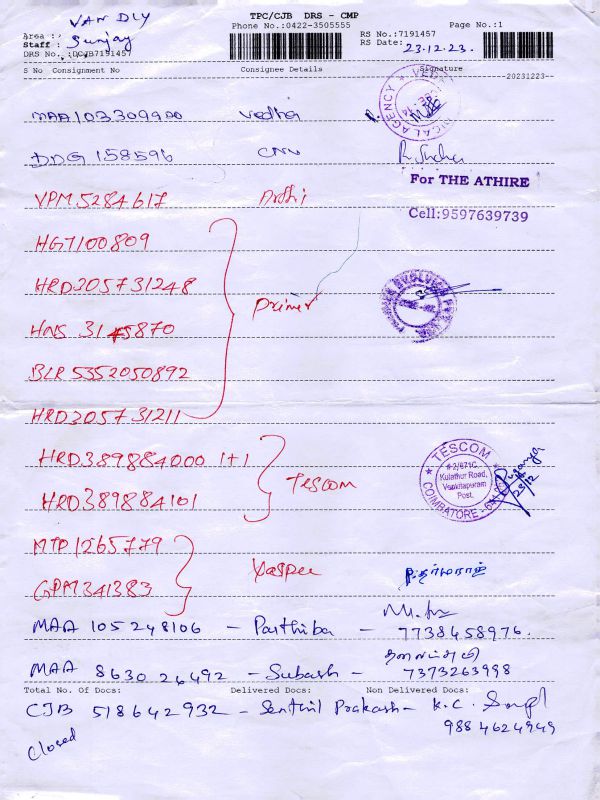 TPC/CJB DRS - CMP
VAN DLY
Phone No.:0422-3505555
Page No.:1
Area :
RS No.:7191457
Staff : Sunjay
RS Date: 23.12.23.
DRS No.:DCJB7191457
S No Consignment No Consignee Details Signature
20231223
MAA103309900 Vedha
DDG 158596 CNN
For THE ATHIRE
VPM5284617
Cell:9597639739
HG7100809
HRD205731248
Primer
BLR 5352050892
HRD205731211
HRD389884000 1+1
Tescom
TESCOM
#-2/671C,
Kulathur Road,
Venkitapuram
Post,
COIMBATORE
HRD389884101
MTP1265779
GPM341383
MAA 105248106 - Parthiba - 7738458976.
MAA 863026492 - Subash - 7373263998
Total No. Of Docs: Delivered Docs: Non Delivered Docs:
CJB 518642932 - Senthil Prakash - K.C.
9884624949
Closed